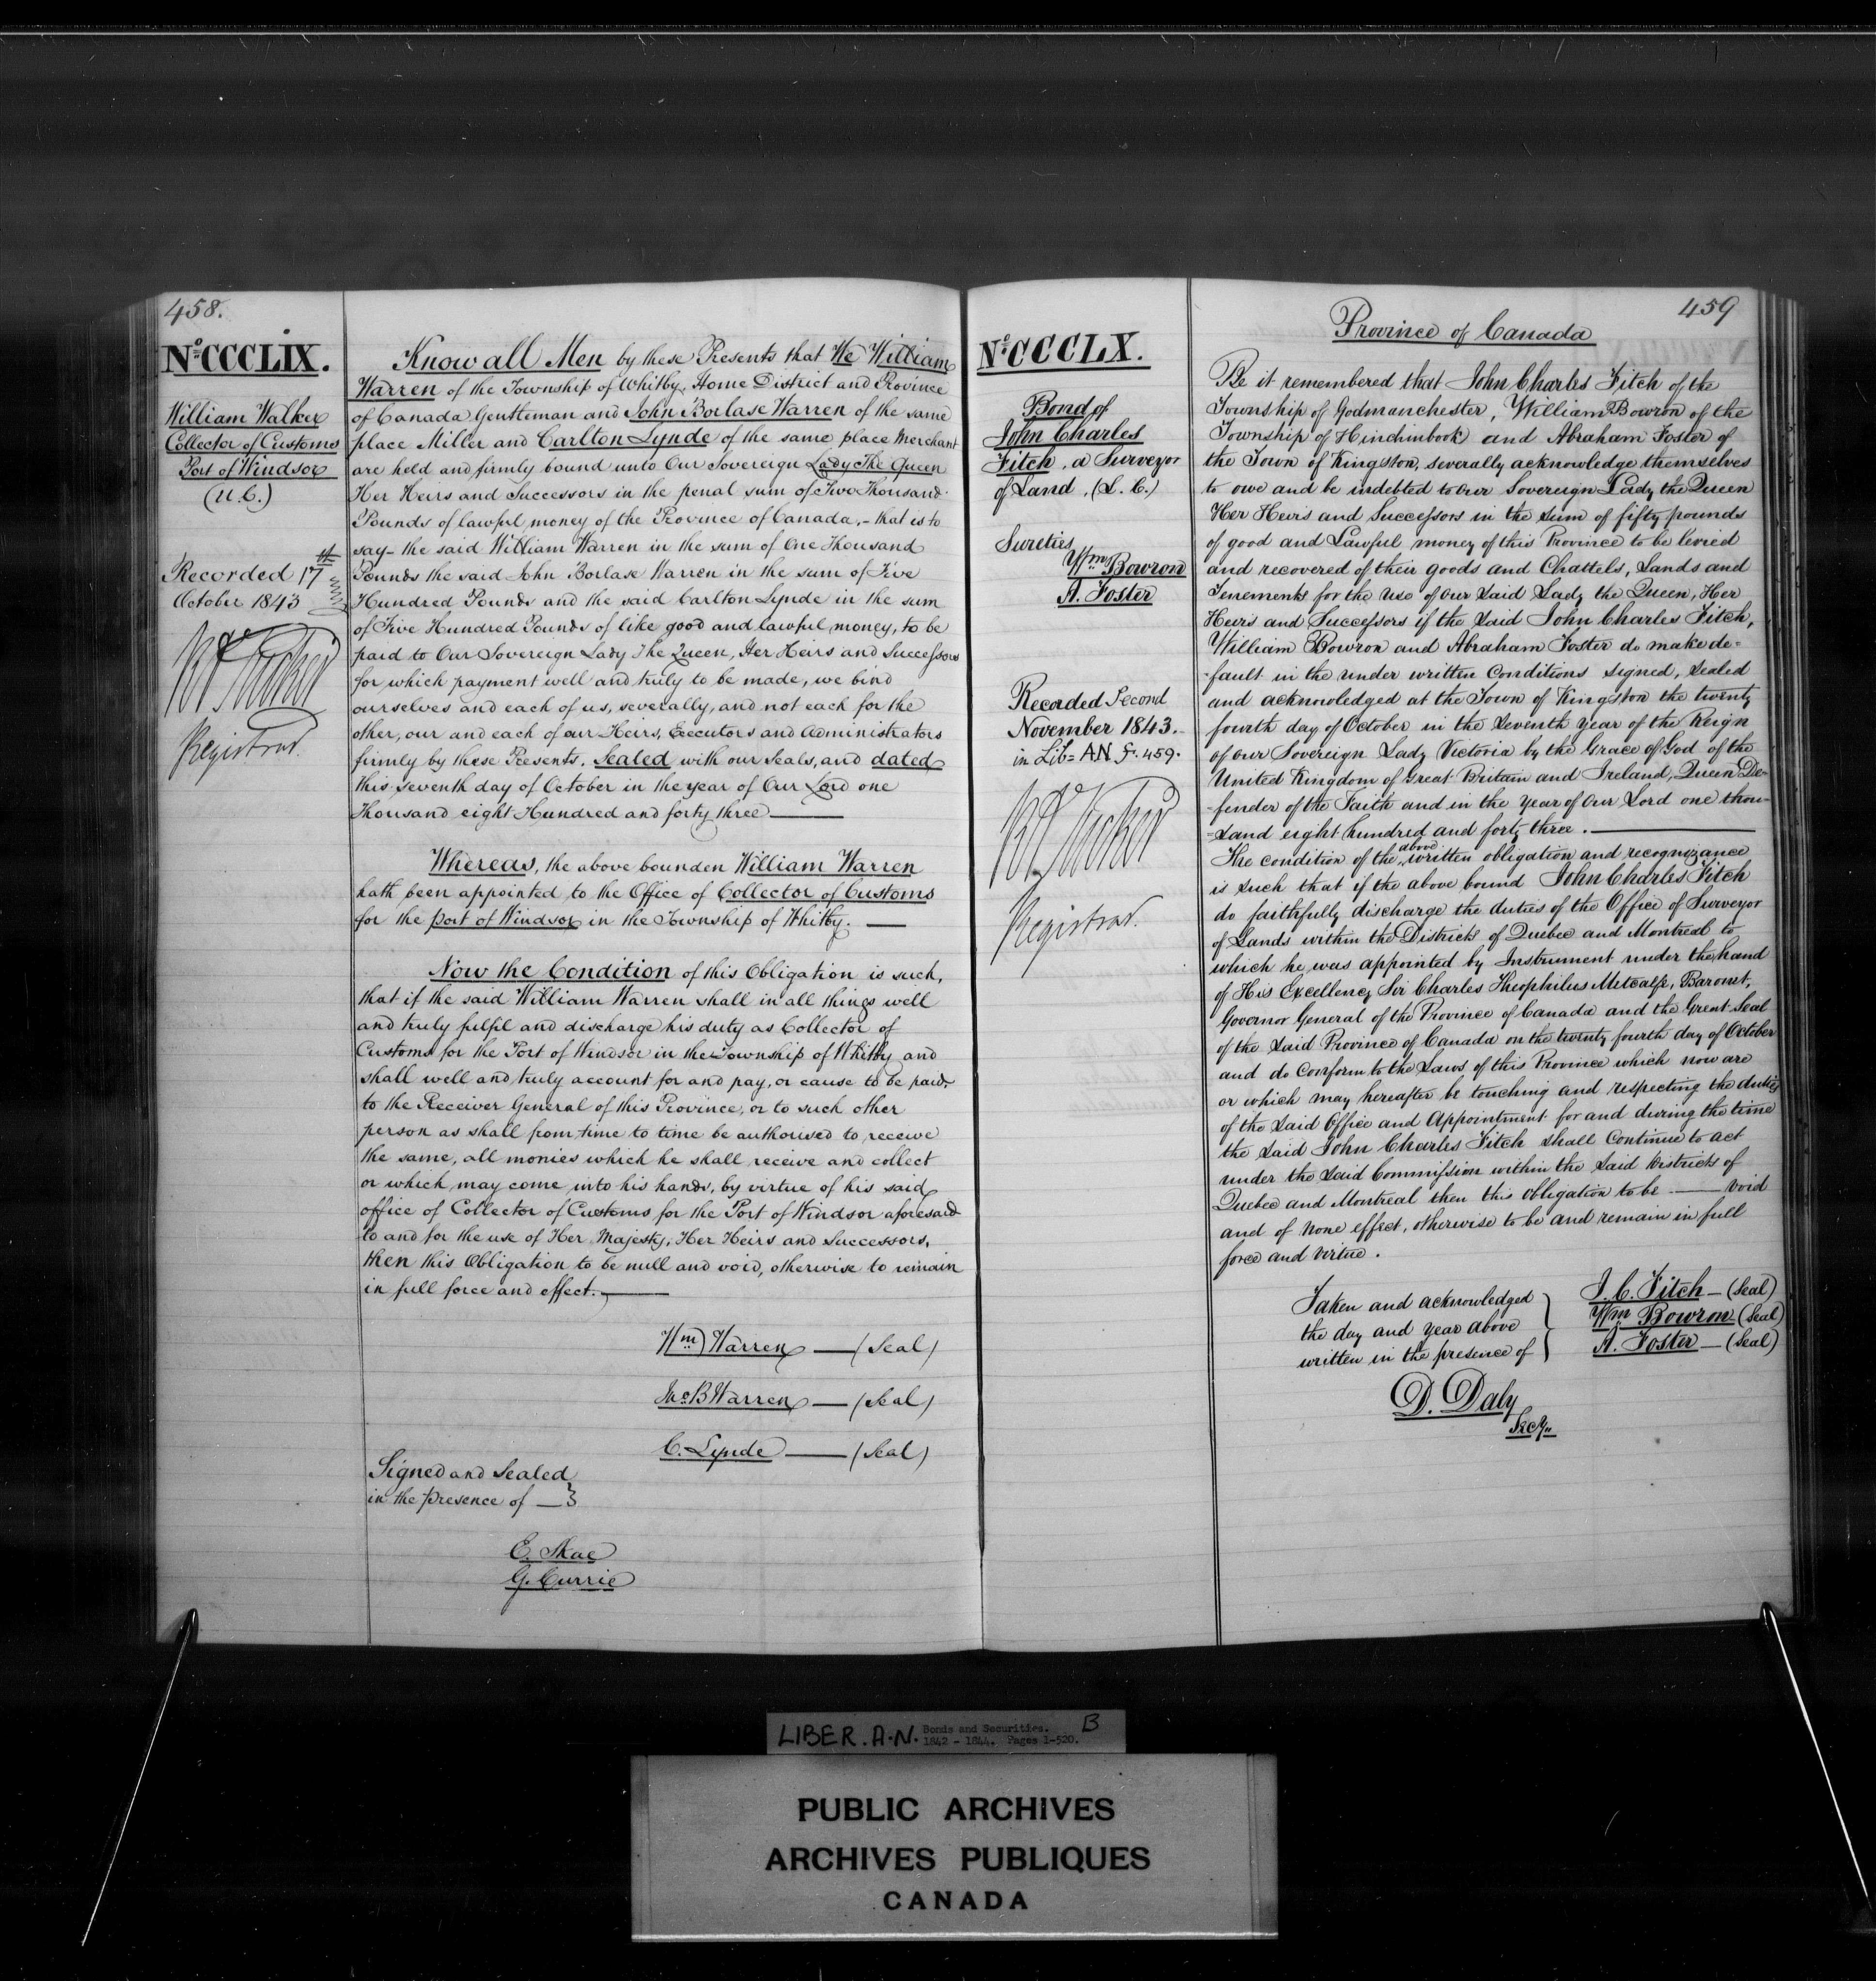 458.
No. CCCLIX.
William Walker
Collector of Customs
Port of Windsor
(U.C.)
Recorded 17th
October 1843
R A Tucker
Registrar.
Know all Men by these Presents that We William
Warren of the Township of Whitby, Home District and Province
of Canada Gentleman and John Borlase Warren of the same
place Miller and Carlton Lynde of the same place Merchant
are held and firmly bound unto Our Sovereign Lady The Queen
Her Heirs and Successors in the penal sum of Two Thousand
Pounds of lawful money of the Province of Canada,- that is to
say- the said William Warren in the sum of One Thousand
Pounds the said John Borlase Warren in the sum of Five
Hundred Pounds and the said Carlton Lynde in the sum
of Five Hundred Pounds of like good and lawful money, to be
paid to Our Sovereign Lady The Queen, Her Heirs and Successors
for which payment well and truly to be made, we bind
ourselves and each of us, severally, and not each for the
other, our and each of our Heirs, Executors and Administrators
firmly by these Presents. Sealed with our Seals, and dated
this seventh day of October in the year of Our Lord one
Thousand eight Hundred and forty three —
Whereas, the above bounden William Warren
hath been appointed to the Office of Collector of Customs
for the port of Windsor in the Township of Whitby. —
Now the Condition of this Obligation is such,
that if the said William Warren shall in all things well
and truly fulfil and discharge his duty as Collector of
Customs for the Port of Windsor in the Township of Whitby and
shall well and truly account for and pay, or cause to be paid,
to the Receiver General of this Province, or to such other
person as shall from time to time be authorised to receive
the same, all monies which he shall receive and collect
or which may come into his hands, by virtue of his said
office of Collector of Customs for the Port of Windsor aforesaid
to and for the use of Her Majesty, Her Heirs and Successors,
then this Obligation to be null and void, otherwise to remain
in full force and effect. —
Wm Warren — (Seal)
Jno B Warren — (Seal)
C. Lynde — (Seal)
Signed and Sealed
in the presence of — }
E. Skae
G. Currie
459
No. CCCLX.
Bond of
John Charles
Fitch, a Surveyor
of Land, (L.C.)
Sureties
Wm Bowron
A. Foster
Recorded Second
November 1843.
in Lib= AN F. 459.
R A Tucker
Registrar.
Province of Canada
Be it remembered that John Charles Fitch of the
Township of Godmanchester, William Bowron of the
Township of Hinchinbook and Abraham Foster of
the Town of Kingston, severally acknowledge themselves
to owe and be indebted to our Sovereign Lady the Queen
Her Heirs and Successors in the sum of fifty pounds
of good and Lawful money of this Province to be levied
and recovered of their goods and Chattels, Lands and
Tenements for the use of our said Lady the Queen, Her
Heirs and Successors if the said John Charles Fitch,
William Bowron and Abraham Foster do make de=
-fault in the under written Conditions signed, sealed
and acknowledged at the Town of Kingston the twenty
fourth day of October in the seventh year of the Reign
of our Sovereign Lady Victoria by the Grace of God of the
United Kingdom of Great-Britain and Ireland, Queen De-
-fender of the Faith and in the Year of Our Lord one thou-
=sand eight hundred and forty three. —
The condition of the above written obligation and recognizance
is such that if the above bound John Charles Fitch
do faithfully discharge the duties of the Office of Surveyor
of Lands within the Districts of Quebec and Montreal to
which he was appointed by Instrument under the hand
of His Excellency Sir Charles Theophilus Metcalfe, Baronet,
Governor General of the Province of Canada and the Great Seal
of the said Province of Canada on the twenty fourth day of October
and do conform to the Laws of this Province which now are
or which may hereafter be touching and respecting the duties
of the said Office and Appointment for and during the time
the said John Charles Fitch shall Continue to act
under the said Commission within the said Districts of
Quebec and Montreal then this obligation to be — void
and of none effect, otherwise to be and remain in full
force and virtue.
Taken and acknowledged
the day and year above
written in the presence of }
J. C. Fitch — (Seal)
Wm Bowron (Seal)
A. Foster — (Seal)
D. Daly
Secy.
LIBER. A.N. Bonds and Securities. B
1842 - 1844. Pages 1-520.
PUBLIC ARCHIVES
ARCHIVES PUBLIQUES
CANADA